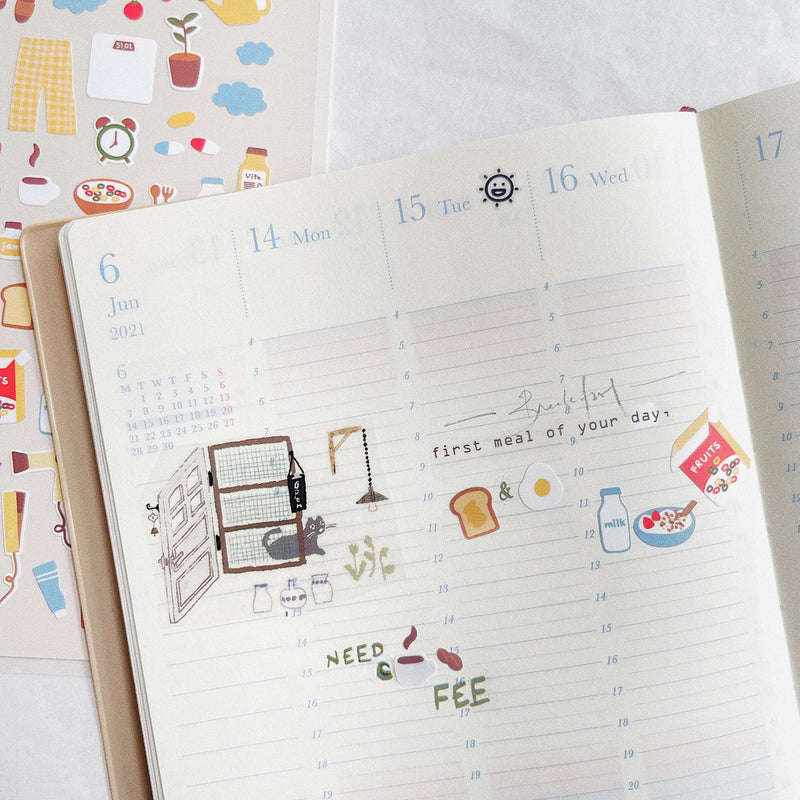 51.02
Vita
jam
6
Jun
2021
14 Mon
15 Tue
16 Wed
17
6
M T W T F S S
1 2 3 4 5 6
7 8 9 10 11 12 13
14 15 16 17 18 19 20
21 22 23 24 25 26 27
28 29 30
4
5
6
7
8
9
10
11
12
13
14
15
16
17
18
19
20
Breakfast
first meal of your day,
OPEN
&
FRUITS
milk
NEED
C
FEE